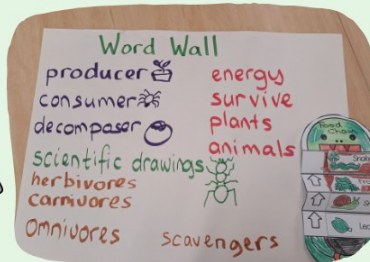 Word Wall
producer
consumer
decomposer
scientific drawings
herbivores
carnivores
omnivores
scavengers
energy
survive
plants
animals
Food
Chain
Snake